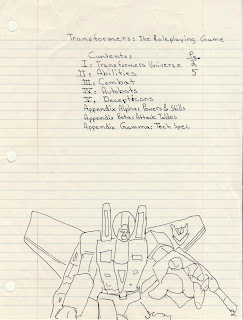 Transformers: The Roleplaying Game
Contents: Pg.
I: Transformers Universe 2
II: Abilities 5
III: Combat
IV: Autobots
V. Decepticons
Appendix Alpha: Powers & Skills
Appendix Beta: Attack Tables
Appendix Gamma: Tech Spec